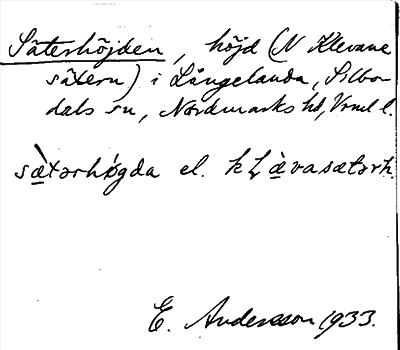 Säterhöjden, höjd (N Klevane
sätern) i Långelanda, Silbo-
dals sn, Nordmarks hd, Vrml l.
sæ̀tərhǿgda el. kʟæ̀vasætərh.
E. Andersson 1933.